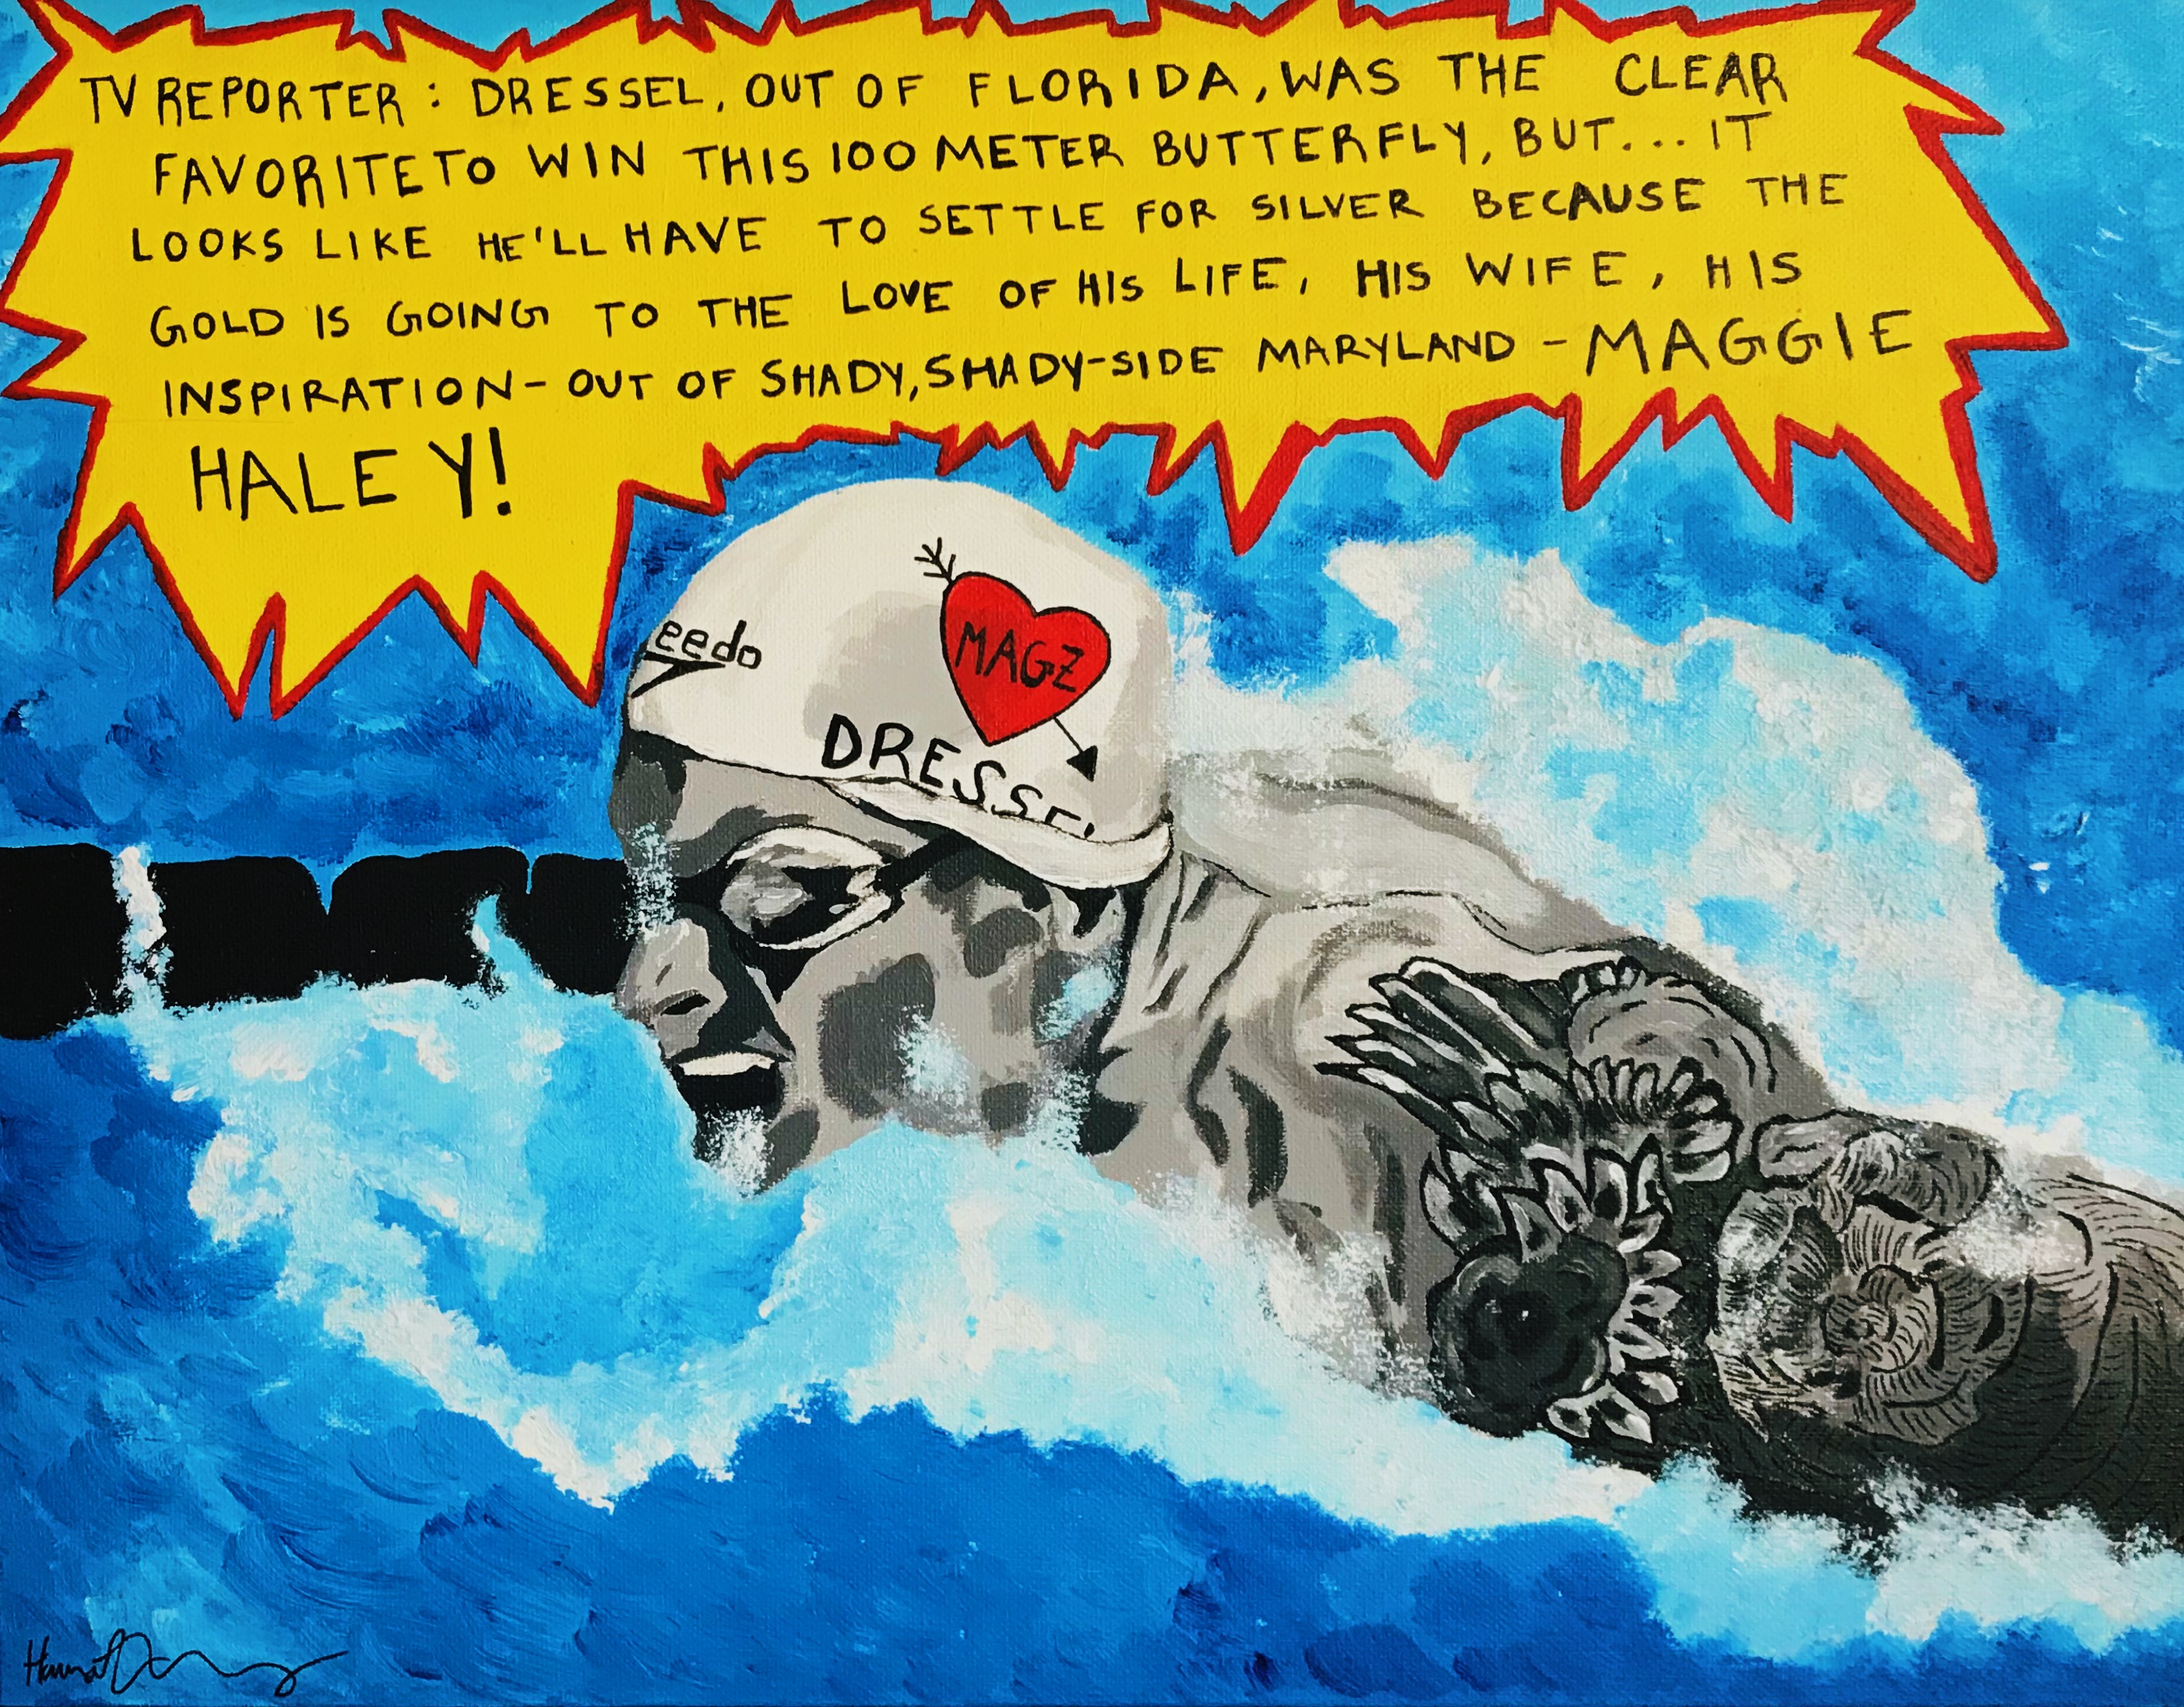 TV REPORTER: DRESSEL, OUT OF FLORIDA, WAS THE CLEAR
FAVORITE TO WIN THIS 100 METER BUTTERFLY, BUT... IT
LOOKS LIKE HE'LL HAVE TO SETTLE FOR SILVER BECAUSE THE
GOLD IS GOING TO THE LOVE OF HIS LIFE, HIS WIFE, HIS
INSPIRATION- OUT OF SHADY, SHADY-SIDE MARYLAND - MAGGIE
HALEY!
eedo
MAGZ
DRESSEL